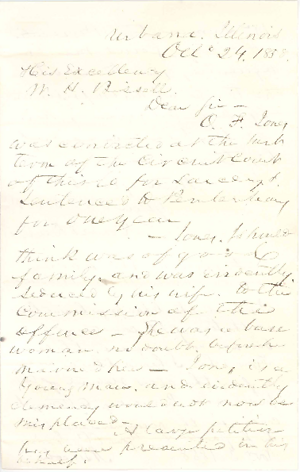 Urbana, Illinois
Oct 24, 185
His Excellency
W. H. Bissell
Dear Sir —
O. F. Jones
was convicted at the
term of the Circuit Court
of this Co for Larceny &
Sentenced to Penitentiary
for One Year
— Jones, I should
think was of good
family, and was evidently
seduced by his wife to the
Commission of the
offence — She was a base
woman, no doubt, before
marriage — Jones is a
young man, and evidently
clemency would not now be
misplaced —
A large petition
has been presented in his
behalf.